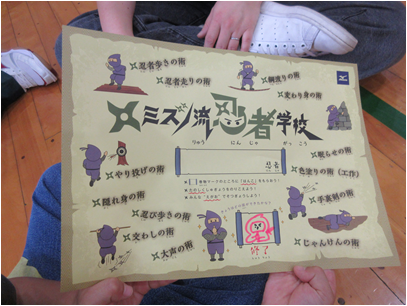 忍者歩きの術
忍者走りの術
綱渡りの術
変わり身の術
ミズノ流忍者学校
りゅう にん じゃ がっ こう
やり投げの術
隠れ身の術
忍び歩きの術
交わしの術
大声の術
眠らせの術
色塗りの術(工作)
手裏剣の術
じゃんけんの術
修了